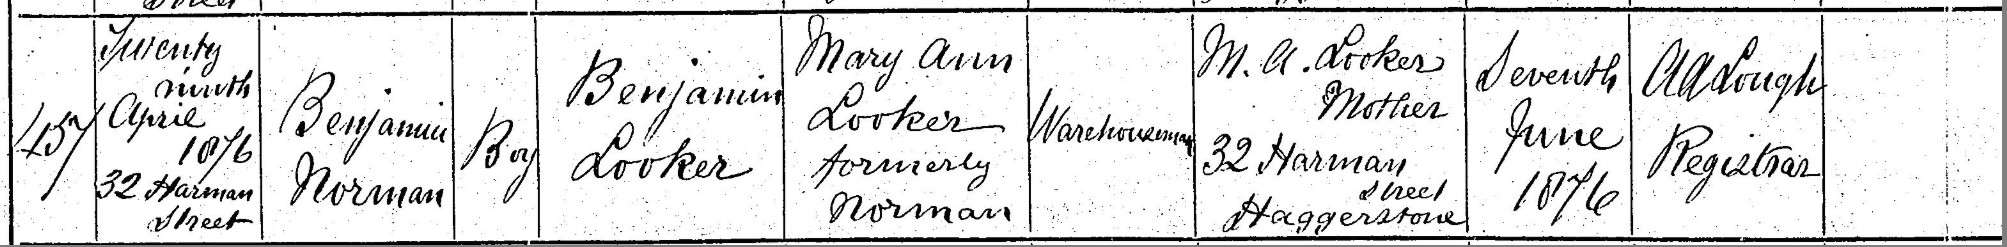 457
Twenty
ninth
April
1876
32 Harman
Street
Benjamin
Norman
Boy
Benjamin
Looker
Mary Ann
Looker
formerly
Norman
Warehouseman
M. A. Looker
Mother
32 Harman
Street
Haggerstone
Seventh
June
1876
A A Lough
Registrar